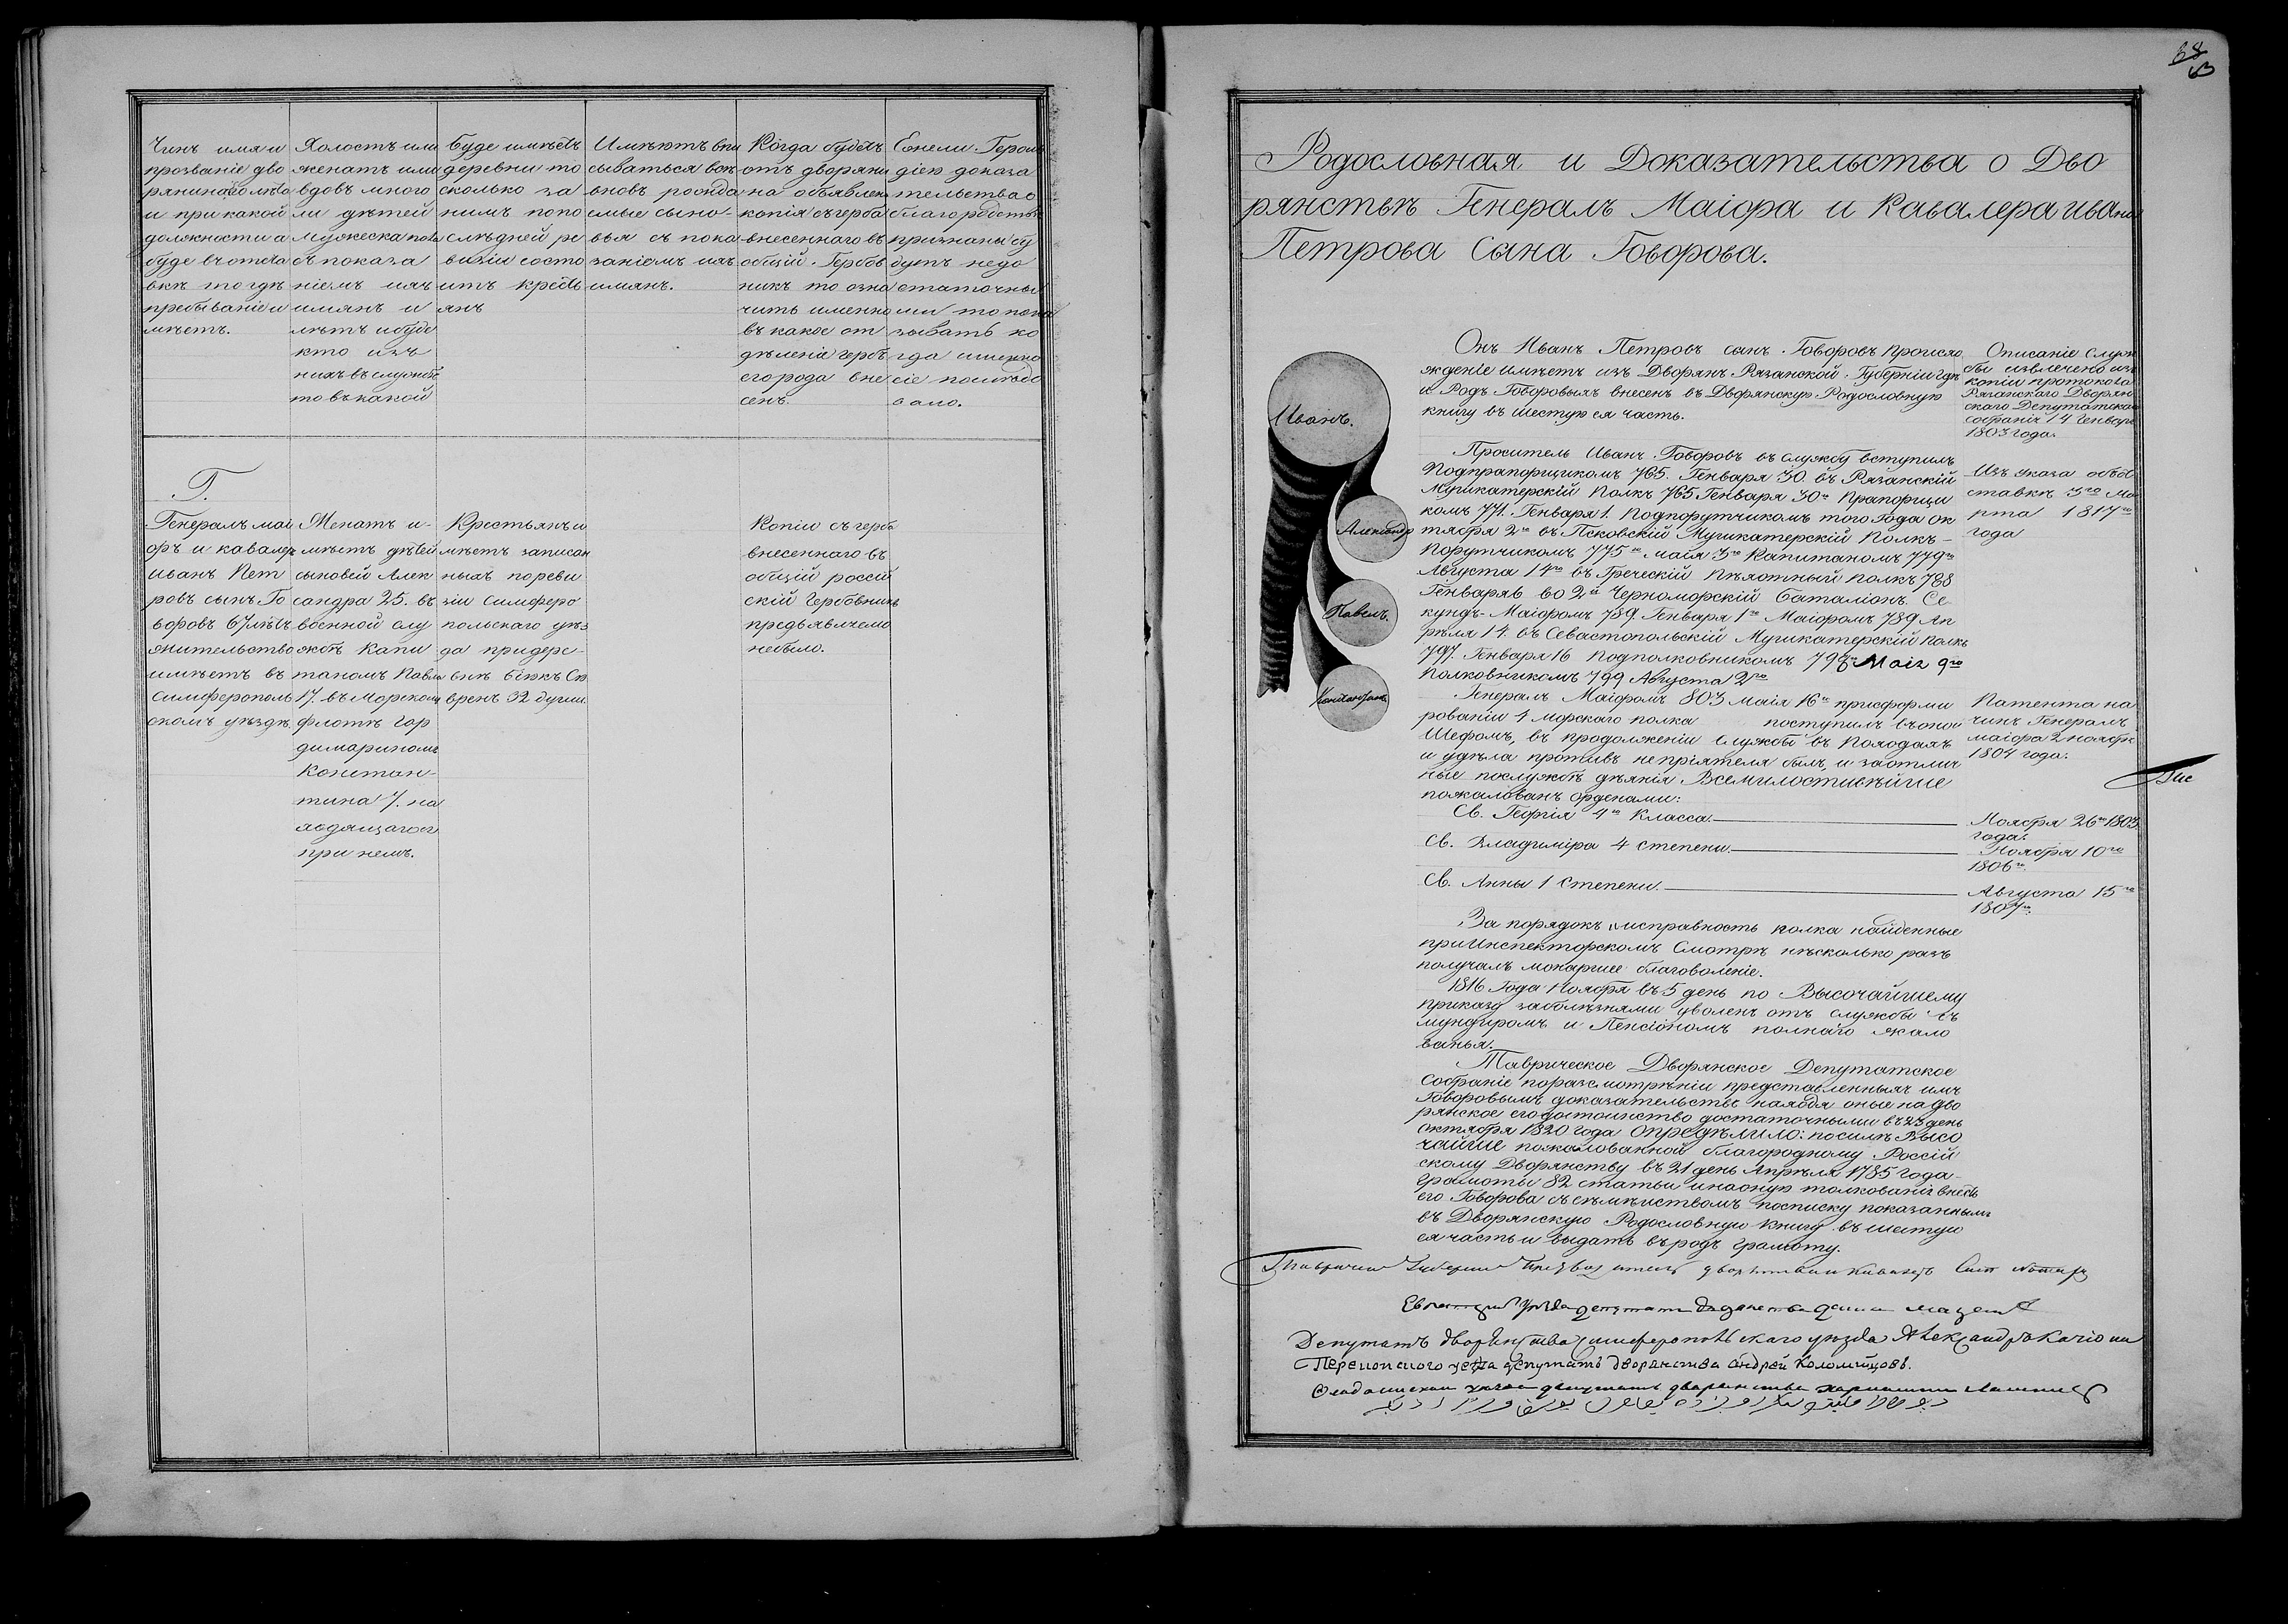 Чинъ имя и
прозваніе дво
рянина сколь лѣтъ
и при какой
должности а
буде въ отста
вкѣ то гдѣ
пребываніе и
мѣетъ.
Холостъ или
женатъ или
вдовъ много
ли дѣтей
мужеска пола
съ показа
ніемъ ихъ
имянъ и
лѣтъ и буде
кто изъ
нихъ въ службѣ
то въ какой
Буде имѣетъ
деревни то
сколько за
нимъ попо
слѣдней ре
визіи состо
итъ кресть
янъ
Имѣютъ впи
сываться вои
вновь рожда
емые сыно-
вья съ пока
заніемъ ихъ
имянъ.
Когда будетъ
отъ дворяни
на объявлена
копія съ герба
внесеннаго въ
общій Гербов
никъ то озна
чить именно
въ какое от
дѣленіе гербъ
его рода вне
сенъ.
Ежели Героль
діею доказа
тельства о
благородствѣ
признаны бу
дутъ недо
статочны
ми то пока
зывать ко
гда именно
сіе послѣдо
вало.
Г.
Генералъ маи
оръ и кавалеръ
Иванъ Пет
ровъ сынъ Го
воровъ 67 лѣтъ
жительство
имѣетъ въ
Симферополь
скомъ уѣздѣ.
Женатъ и-
мѣетъ дѣтей
сыновей Алек
сандра 25. въ
военной слу
жбѣ Капи
таномъ Павла
17. въ морскомъ
флотѣ Гар
димариномъ
Констан-
тина 7. на
ходящагося
при немъ.
Крестьянъ и
мѣетъ записан
ныхъ по реви
зіи Симферо
польскаго уѣз
да при дере-
внѣ Біюкъ Ся
вренъ 32 души.
Копіи съ герба
внесеннаго въ
общій россій
скій Гербовникъ
предъявляемо
небыло.
Родословная и Доказательства о Дво
рянствѣ Генералъ Маіора и Кавалера Ивана
Петрова Сына Говорова.
Иванъ.
Александр
Павелъ.
Константинъ
Онъ Иванъ Петровъ сынъ Говоровъ происхо
жденіе имѣетъ изъ Дворянъ Рязанской Губерніи гдѣ
и Родъ Говоровыхъ внесенъ въ Дворянскую Родословную
книгу въ шестую ея часть.
Описаніе служ
бы извлечено изъ
копіи протокола
Рязанскаго Дворян
скаго Депутатскаго
собранія 14 Генваря
1803 года.
Проситель Иванъ Говоровъ въ службу вступилъ
Подпрапорщикомъ 765. Генваря 30. въ Рязанскій
Мушкатерскій полкъ 765 Генваря 30го Прапорщи
комъ 771. Генваря 1. Подпорутчикомъ того Года ок
тября 2го въ Псковскій Мушкатерскій Полкъ-
Порутчикомъ 775го маія 3го Капитаномъ 779го
Августа 14го въ Греческій Пѣхотный полкъ 788
Генваря 6 во 2й Черноморскій баталіонъ. Се
кундъ-Маіоромъ 789. Генваря 1го Маіоромъ 789 Ап
рѣля 14. въ Севастопольскій Мушкатерскій полкъ
797. Генваря 16 Подполковникомъ 798го Маія 9го
Полковникомъ 799 Августа 2го
Изъ указа объ от
ставкѣ 3го Ма
рта 1817го
года
Генералъ Маіоромъ 803 маія 16го при сформи
рованіи 4 морскаго полка поступилъ въ оной
Шефомъ, въ продолженіи службы въ Походахъ
и у дѣла противъ непріятеля былъ, и за отлич
ные по службѣ дѣянія Всемилостивѣйше
пожалованъ орденами:
Патента на
чинъ Генералъ
маіора 2 ноября
1804 года.
Св. Георгія 4го Класса.
Ноября 26го 1803
года.
Св. Владиміра 4 степени.
Ноября 10го
1806го.
Св. Анны 1 степени.
Августа 15го
1807го.
За порядокъ и исправность полка найденные
при Инспекторскомъ Смотрѣ нѣсколько разъ
получалъ монаршее благоволеніе.
1816 Года Ноября въ 5 день по Высочайшему
приказу за болѣзнями уволенъ отъ службы съ
мундиромъ и Пенсіономъ полнаго жало
ванья.
Таврическое Дворянское Депутатское
Собраніе по разсмотрѣніи представленныхъ имъ
Говоровымъ доказательствъ находя оные на дво
рянское его достоинство достаточными въ 23 день
октября 1820 года опредѣлило: по силѣ Высо
чайше пожалованной благородному Россій
скому Дворянству въ 21 день Апрѣля 1785 года
Грамоты 82 статьи и на оную толкованія внесть
его Говорова съ сѣмѣиствомъ по списку показаннымъ
въ Дворянскую Родословную Книгу въ шестую
ея часть и выдать въ родъ грамоту.
Депутатъ дворянства Симферопольскаго уезда Александръ Качіони
Перекопского уезда депутатъ дворянства андрей Коломийцовъ.